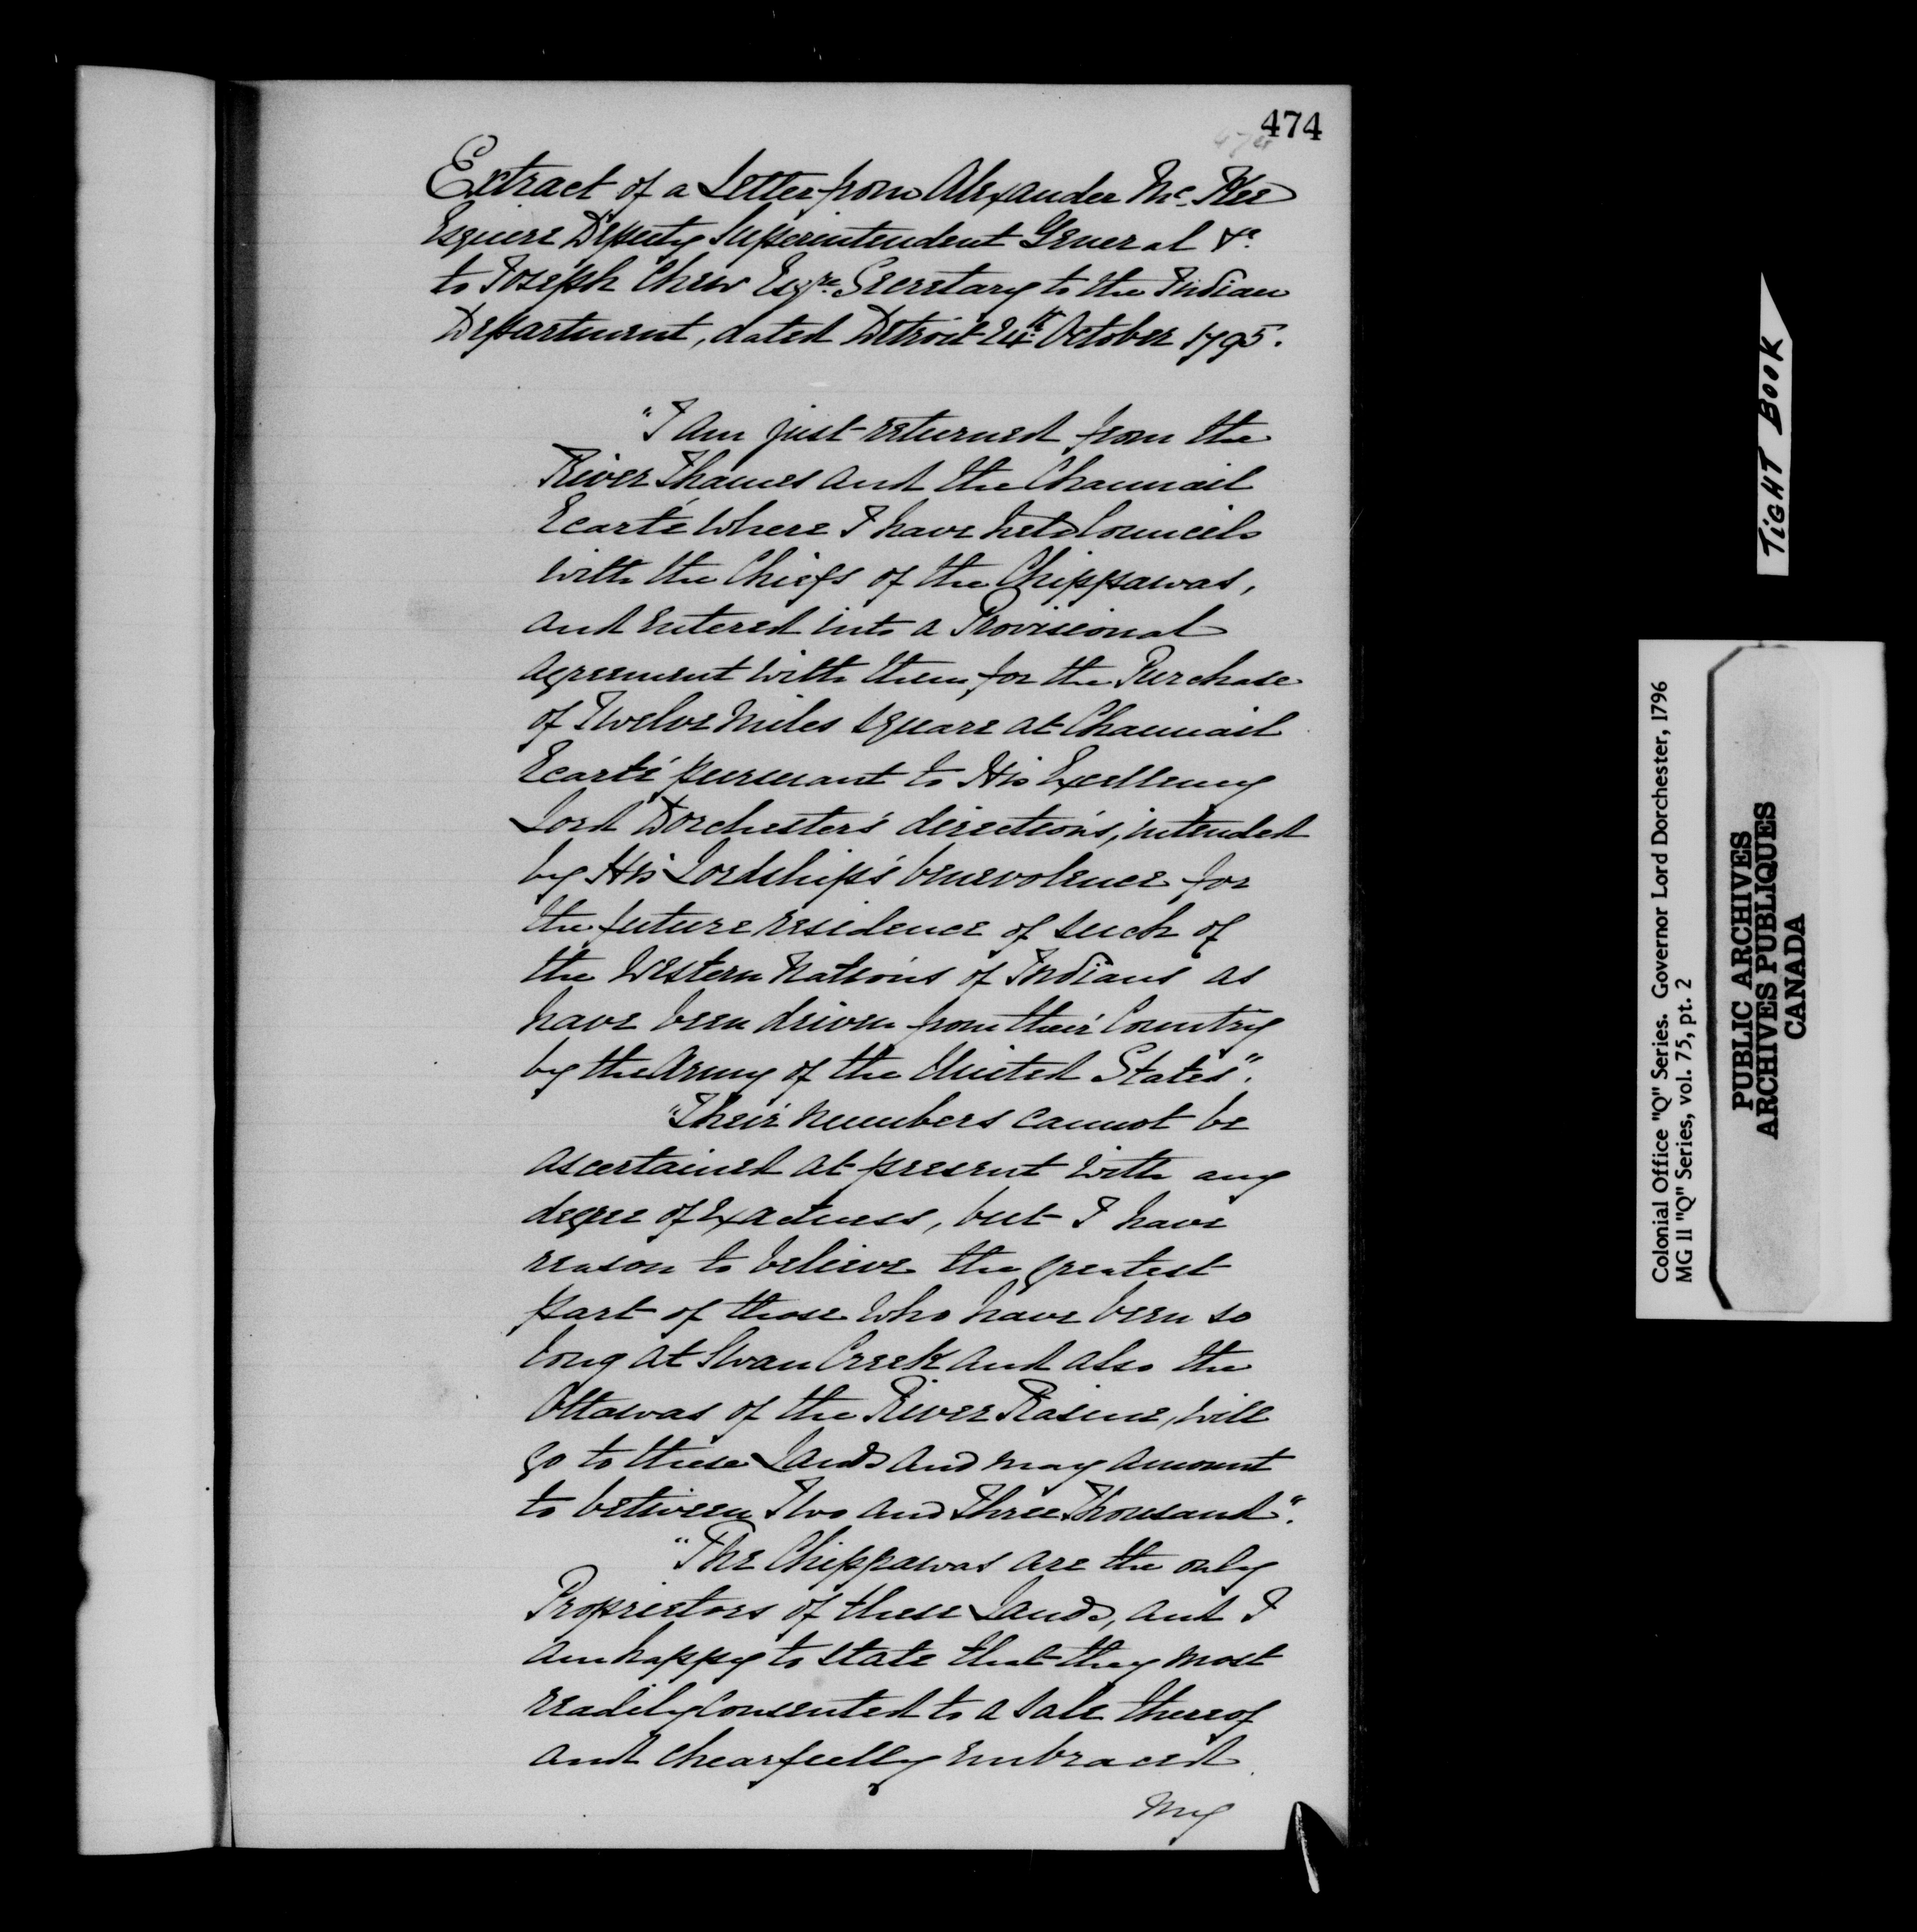 474
474
Extract of a Letter from Alexander Mc. Kee
Esquire Deputy Superintendent General &c.
to Joseph Chew Esqre. Secretary to the Indian
Department, dated Detroit 24th October 1795.
"I am just returned from the
River Thames and the Channail
Ecarté where I have held Councils
with the Chiefs of the Chippawas,
and entered into a Provisional
agreement with them for the Purchase
of Twelve Miles square at Channail
Ecarté pursuant to His Excellency
Lord Dorchester's directions, intended
by His Lordship's benevolence for
the future residence of such of
the Western Nations of Indians as
have been driven from their Country
by the Army of the United States".
"Their numbers cannot be
ascertained at present with any
degree of exactness, but I have
reason to believe the greatest
part of those who have been so
long at Swan Creek and also the
Ottawas of the River Rasine, will
go to these Lands and may amount
to between Two and Three Thousand".
"The Chippawas are the only
Proprietors of these Lands, and I
am happy to state that they most
readily consented to a sale thereof
and chearfully embraced
my
TIGHT BOOK
Colonial Office "Q" Series. Governor Lord Dorchester, 1796
MG 11 "Q" Series, vol. 75, pt. 2
PUBLIC ARCHIVES
ARCHIVES PUBLIQUES
CANADA